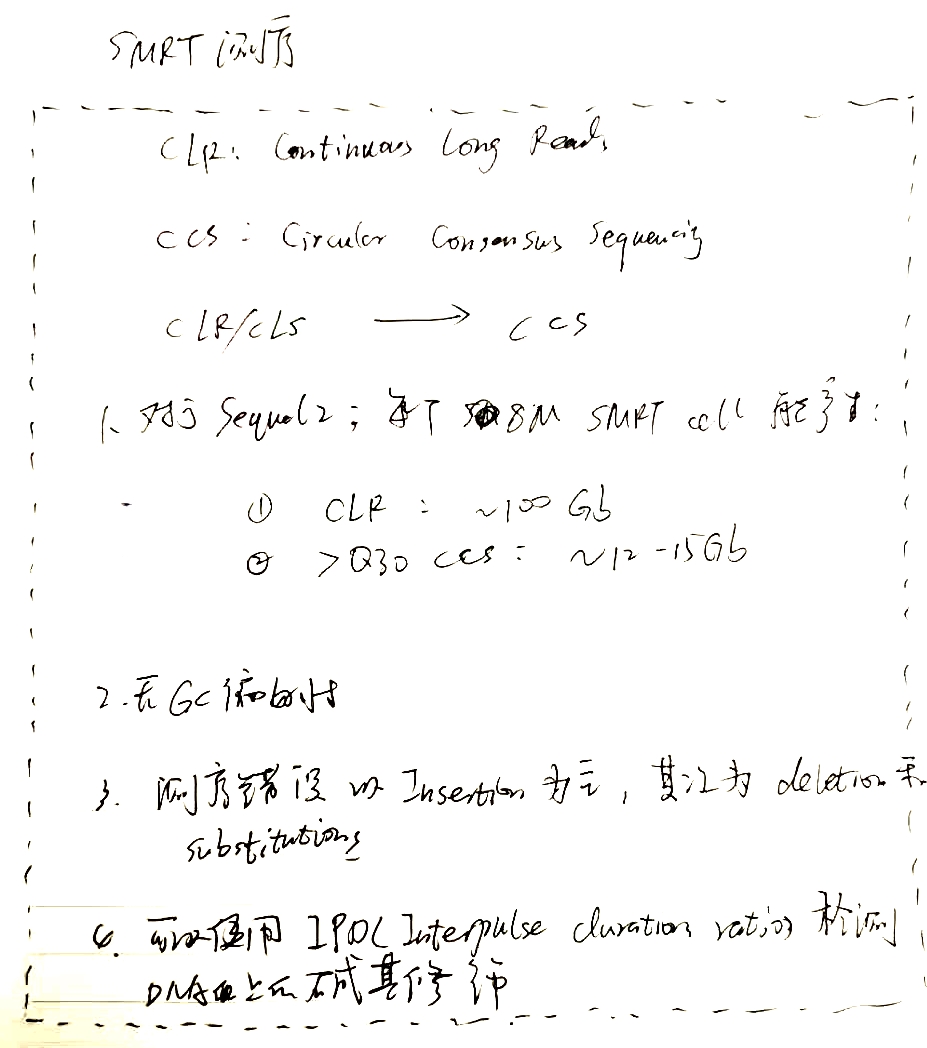 SMRT 测序
CLR: Continuous Long Reads
CCS: Circular Consensus Sequencing
CLR/CLS → CCS
1、对于 Sequel2; 每个 8M SMRT cell 能产生:
① CLR: ~100 Gb
② >Q30 CCS: ~12-15Gb
2. 无GC偏向性
3. 测序错误以 Insertion 为主, 其次为 deletion 和
substitutions
4. 可以使用 IPD( Interpulse duration ratios 检测
DNA上的碱基修饰